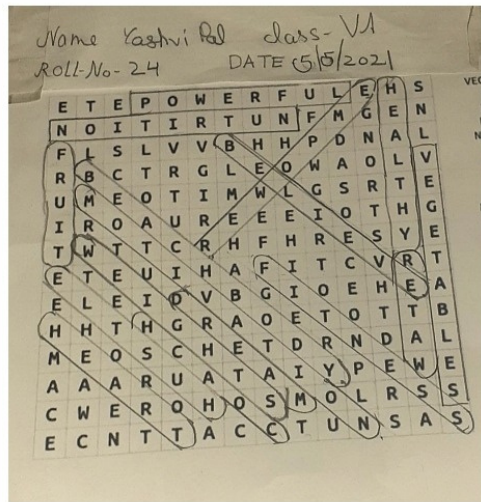 Name Yashvi Pal class- VI
ROLL-No- 24 DATE 5/5/2021
E T E P O W E R F U L E H S
N O I T I R T U N F M G E N
F L S L V V B H H P D N A L
R B C T R G L E O W A O L V
U M E O T I M W L G S R T E
I R O A U R E E E I O T H G
T W T T C R H F H R E S Y E
E T E U I H A F I T C V R T
E L E I D V B G I O E H E A
H H T H G R A O E T O T T B
M E O S C H E T D R N D A L
A A A R U A T A I Y P E W E
C W E R O H O S M O L R S S
E C N T T A C C T U N S A S